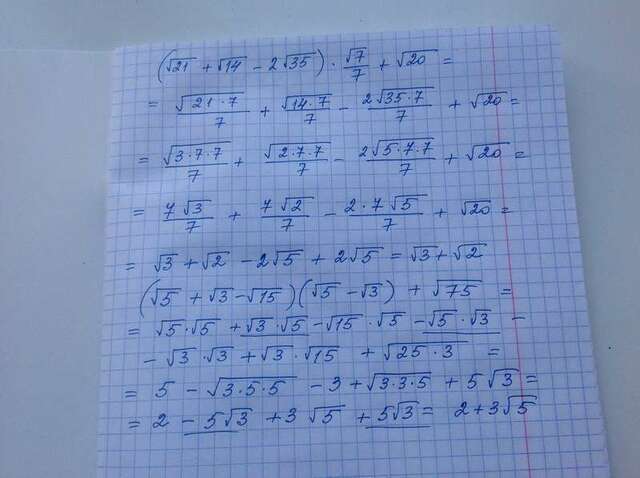 (√21 + √14 − 2√35) · √7/7 + √20 =
= √(21·7)/7 + √(14·7)/7 − 2√(35·7)/7 + √20 =
= √(3·7·7)/7 + √(2·7·7)/7 − 2√(5·7·7)/7 + √20 =
= 7√3/7 + 7√2/7 − 2·7√5/7 + √20 =
= √3 + √2 − 2√5 + 2√5 = √3 + √2
(√5 + √3 − √15)(√5 − √3) + √75 =
= √5·√5 + √3·√5 − √15·√5 − √5·√3 −
− √3·√3 + √3·√15 + √(25·3) =
= 5 − √(3·5·5) − 3 + √(3·3·5) + 5√3 =
= 2 − 5√3 + 3√5 + 5√3 = 2 + 3√5